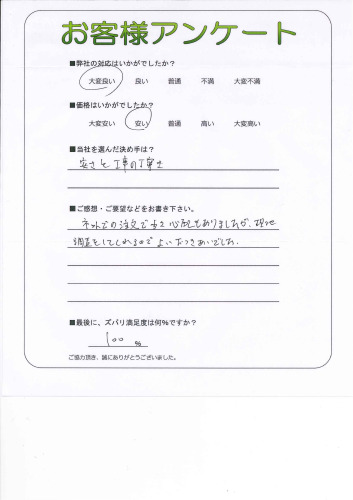 お客様アンケート
■弊社の対応はいかがでしたか？
大変良い 良い 普通 不満 大変不満
■価格はいかがでしたか？
大変安い 安い 普通 高い 大変高い
■当社を選んだ決め手は？
安さと工事の丁寧さ
■ご感想・ご要望などをお書き下さい。
ネットでの注文で少々心配もありましたが、現地
調査をしてくれるのでよいおつきあいでした。
■最後に、ズバリ満足度は何％ですか？
100 %
ご協力頂き、誠にありがとうございました。